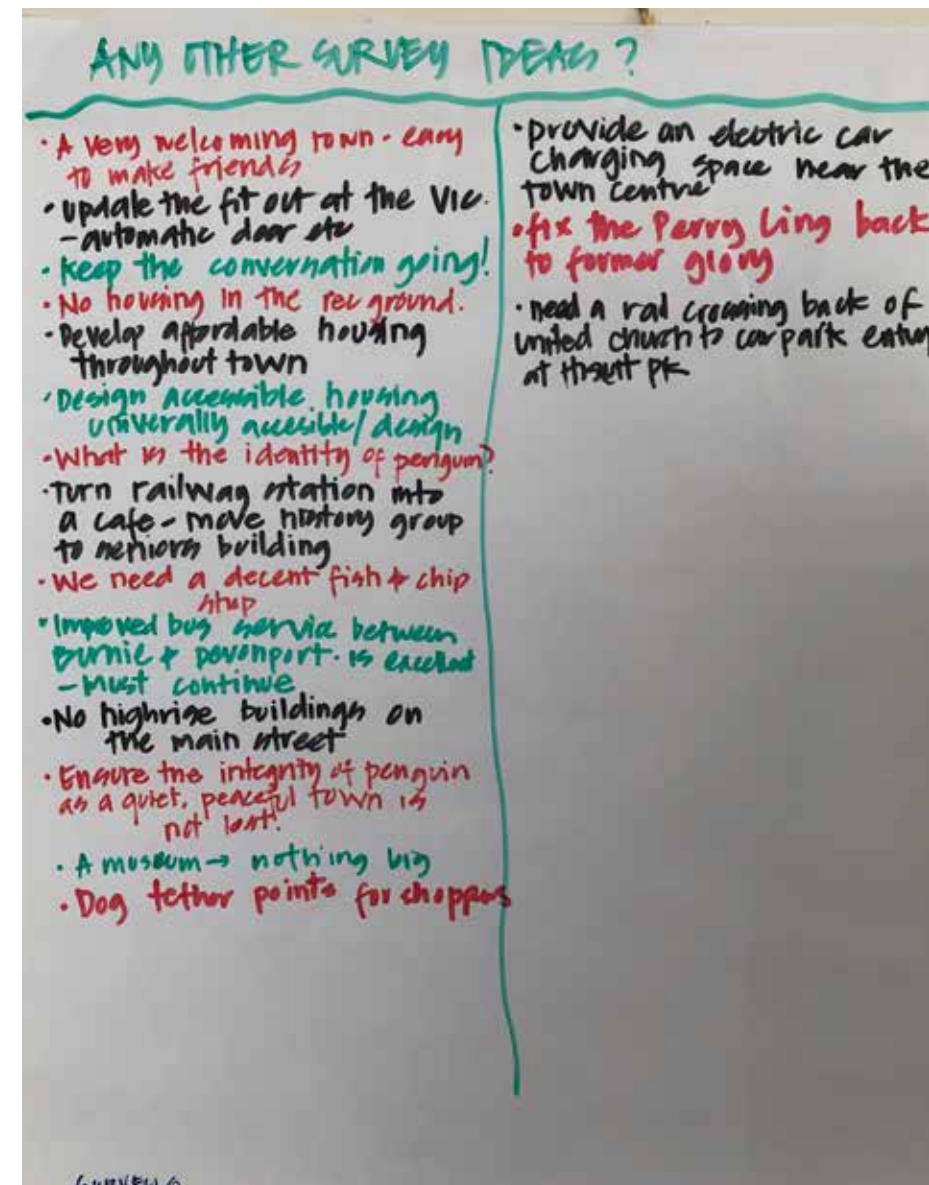 ANY OTHER SURVEY IDEAS?
• A very welcoming town - easy
to make friends
• update the fit out at the Vic.
- automatic door etc
• Keep the conversation going!
• No housing in the rec ground.
• Develop affordable housing
throughout town
• Design accessible housing
univerally accesible/design
• What is the identity of penguin?
• Turn railway station into
a cafe - move history group
to seniors building
• We need a decent fish & chip
shop
• Improved bus service between
Burnie & Devonport. is excellent
- Must continue
• No highrise buildings on
the main street
• Ensure the integrity of penguin
as a quiet, peaceful town is
not lost!
• A museum → nothing big
• Dog tether points for shoppers
• provide an electric car
charging space near the
town centre
• fix the Perry Ling back
to former glory
• need a rail crossing back of
united church to car park
at pk
SURVEYS